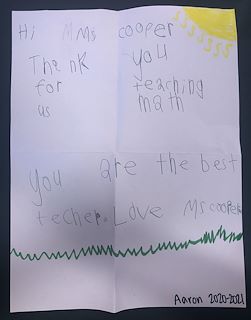 Hi MMs cooper
Thank you
for teaching
us math
You are the best
techer. Love Ms cooper
Aaron 2020-2021